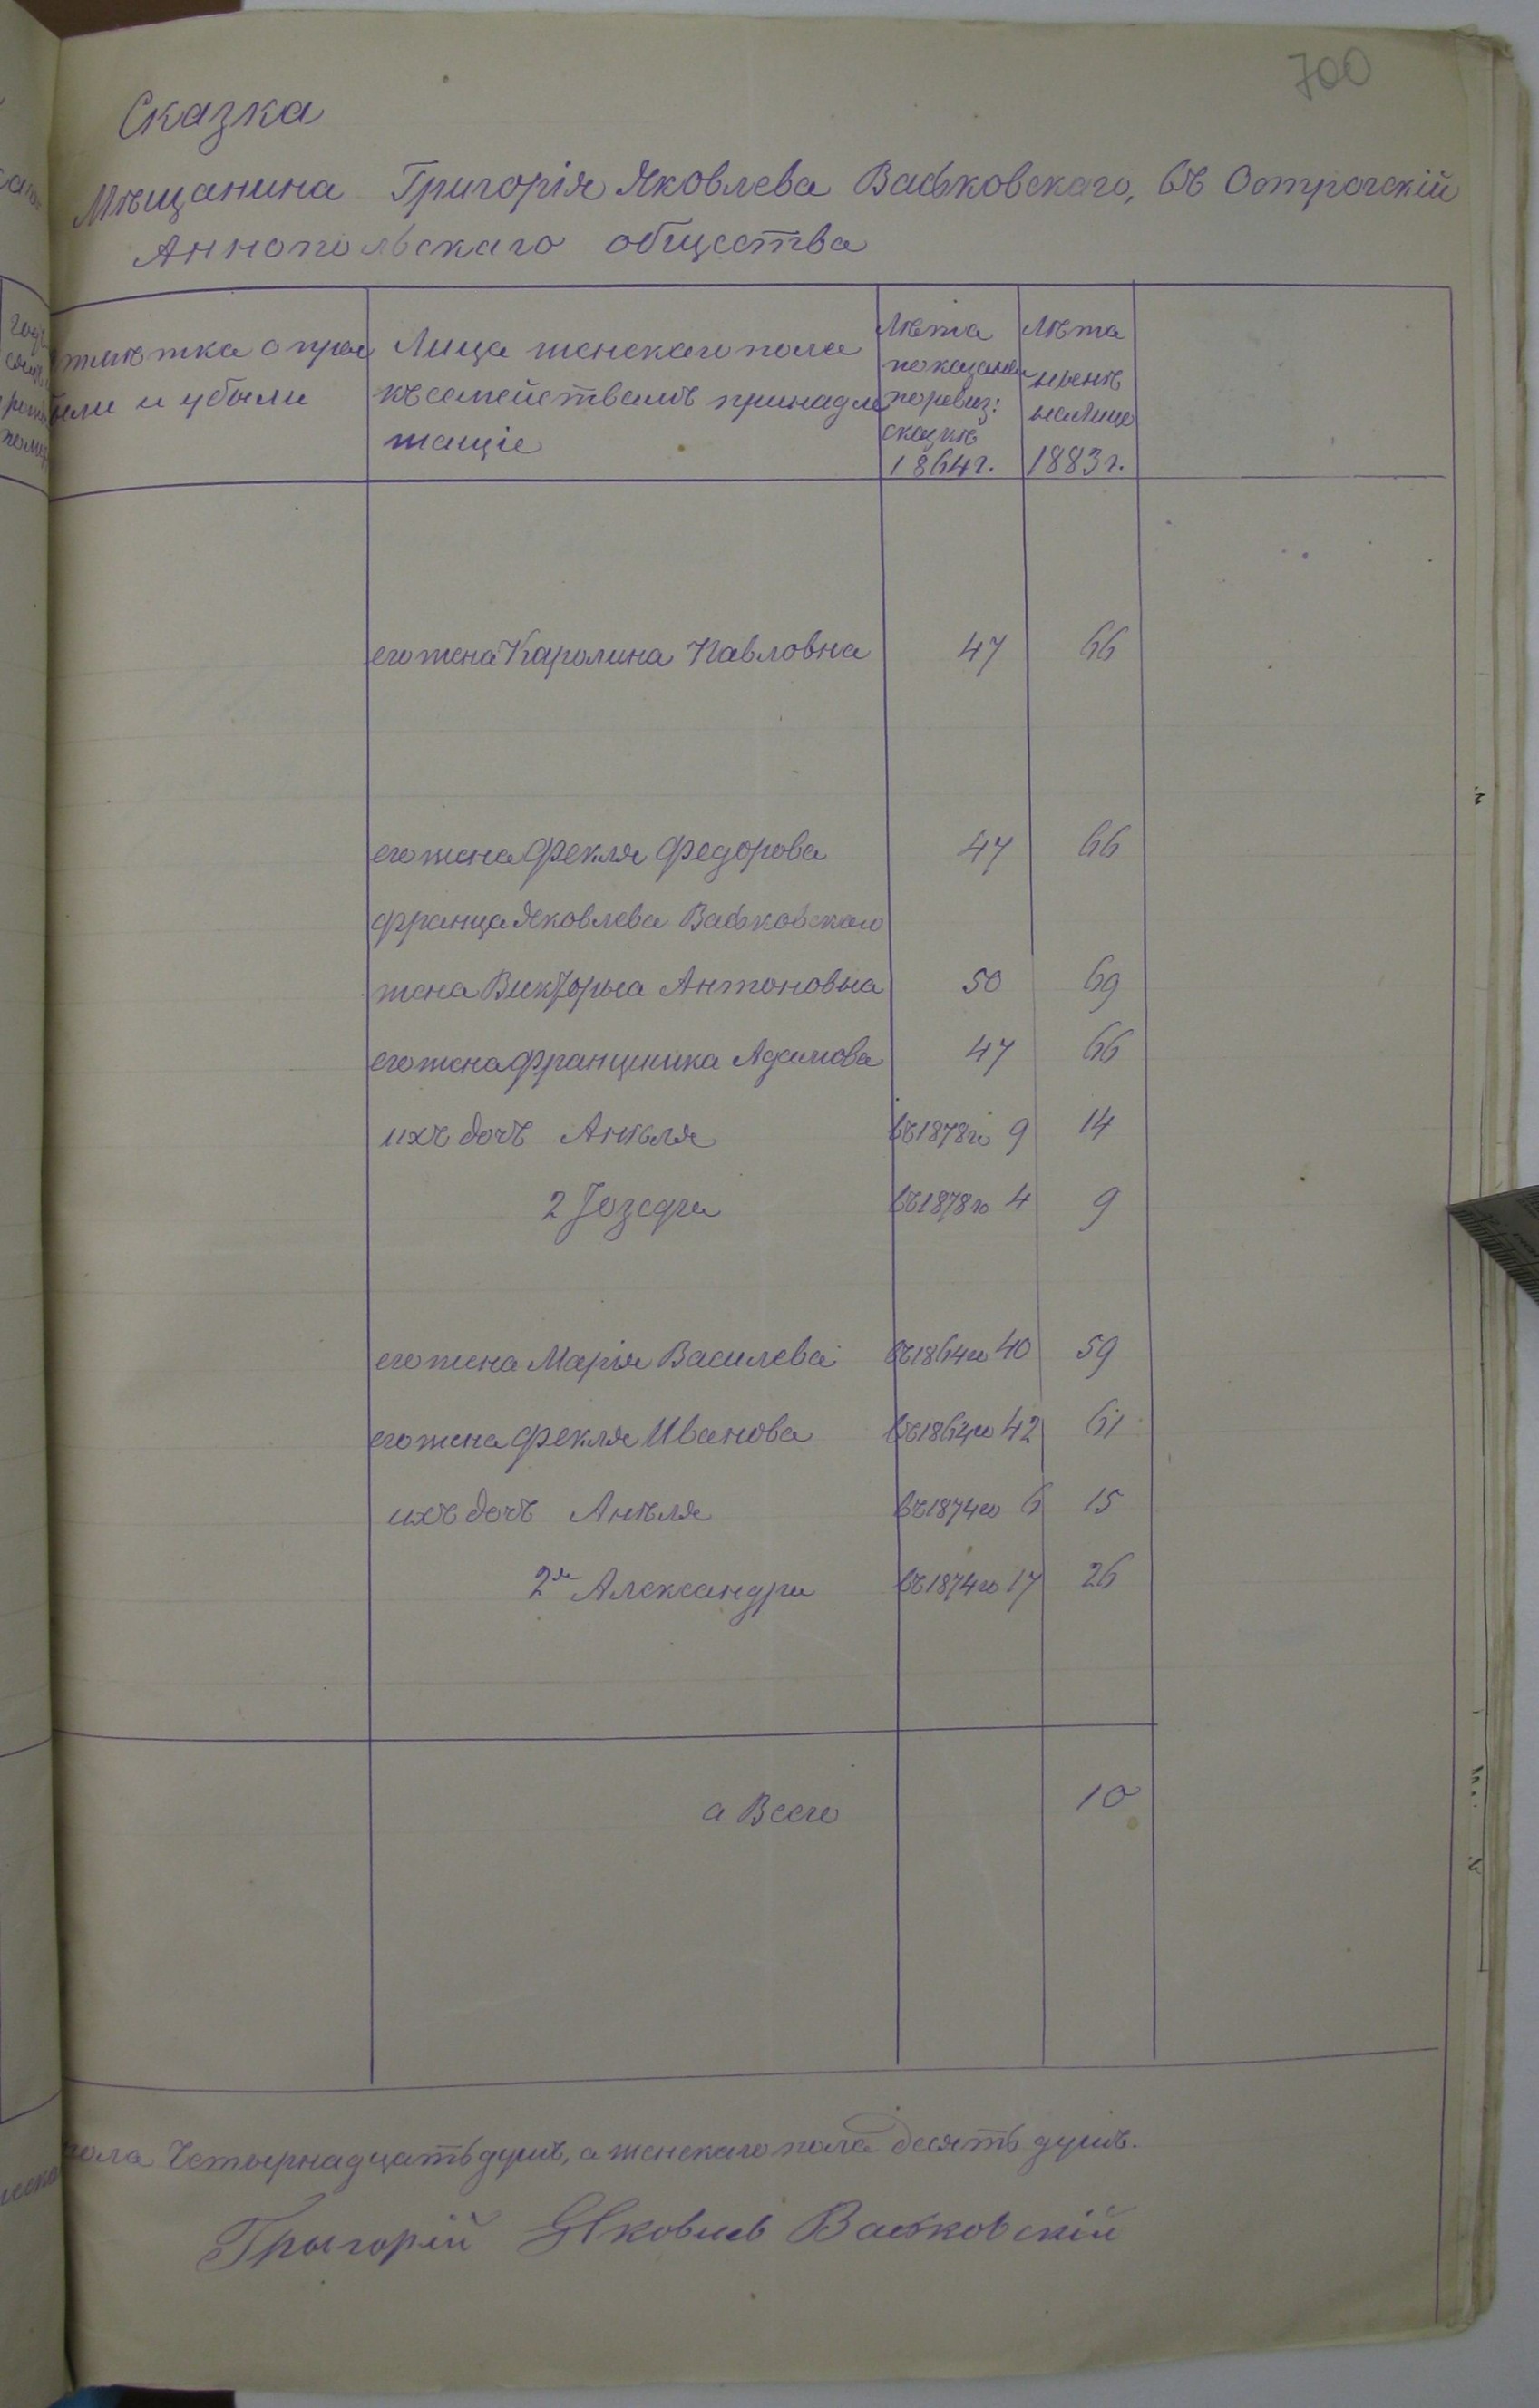 700
Сказка
Мѣщанина Григорія Яковлева Вацьковскаго, въ Острогскій
Аннопольскаго общества
тмѣтка о при
были и убыли
Лица женскаго пола
къ семействамъ принадле
жащіе
Лѣта
показаны
по ревиз:
сказкѣ
1864 г.
Лѣта
нынѣ
налицо
1883 г.
его жена Каролина Павловна 47 66
его жена Фекля Федорова 47 66
Франца Яковлева Вацьковскаго
жена Викторыа Антоновна 50 69
его жена Францишка Адамова 47 66
ихъ дочъ Анѣля въ 1878 го 9 14
2 Юзефа въ 1878 го 4 9
его жена Марія Василева въ 1864 го 40 59
его жена Фекля Иванова въ 1864 го 42 61
ихъ дочъ Анѣля въ 1874 го 6 15
2я Александра въ 1874 го 17 26
а Всего 10
пола Четырнадцать душъ, а женскаго пола десять душъ.
Грыгорій Яковлев Вацьковскій